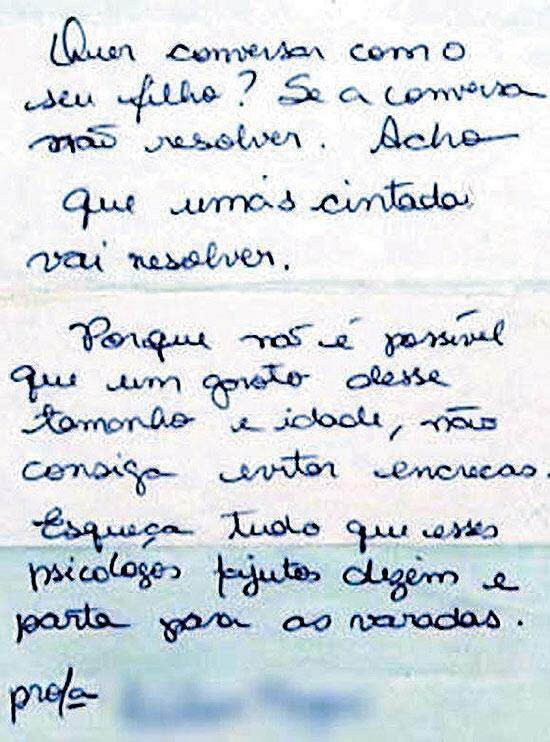 Quer conversar com o
seu filho? Se a conversa
não resolver. Acho
que umas cintada
vai resolver.
Porque não é possível
que um garoto desse
tamanho e idade, não
consiga evitar encrecas.
Esqueça tudo que esses
psicologos fajutos dizem e
parta para as varadas.
prof/a